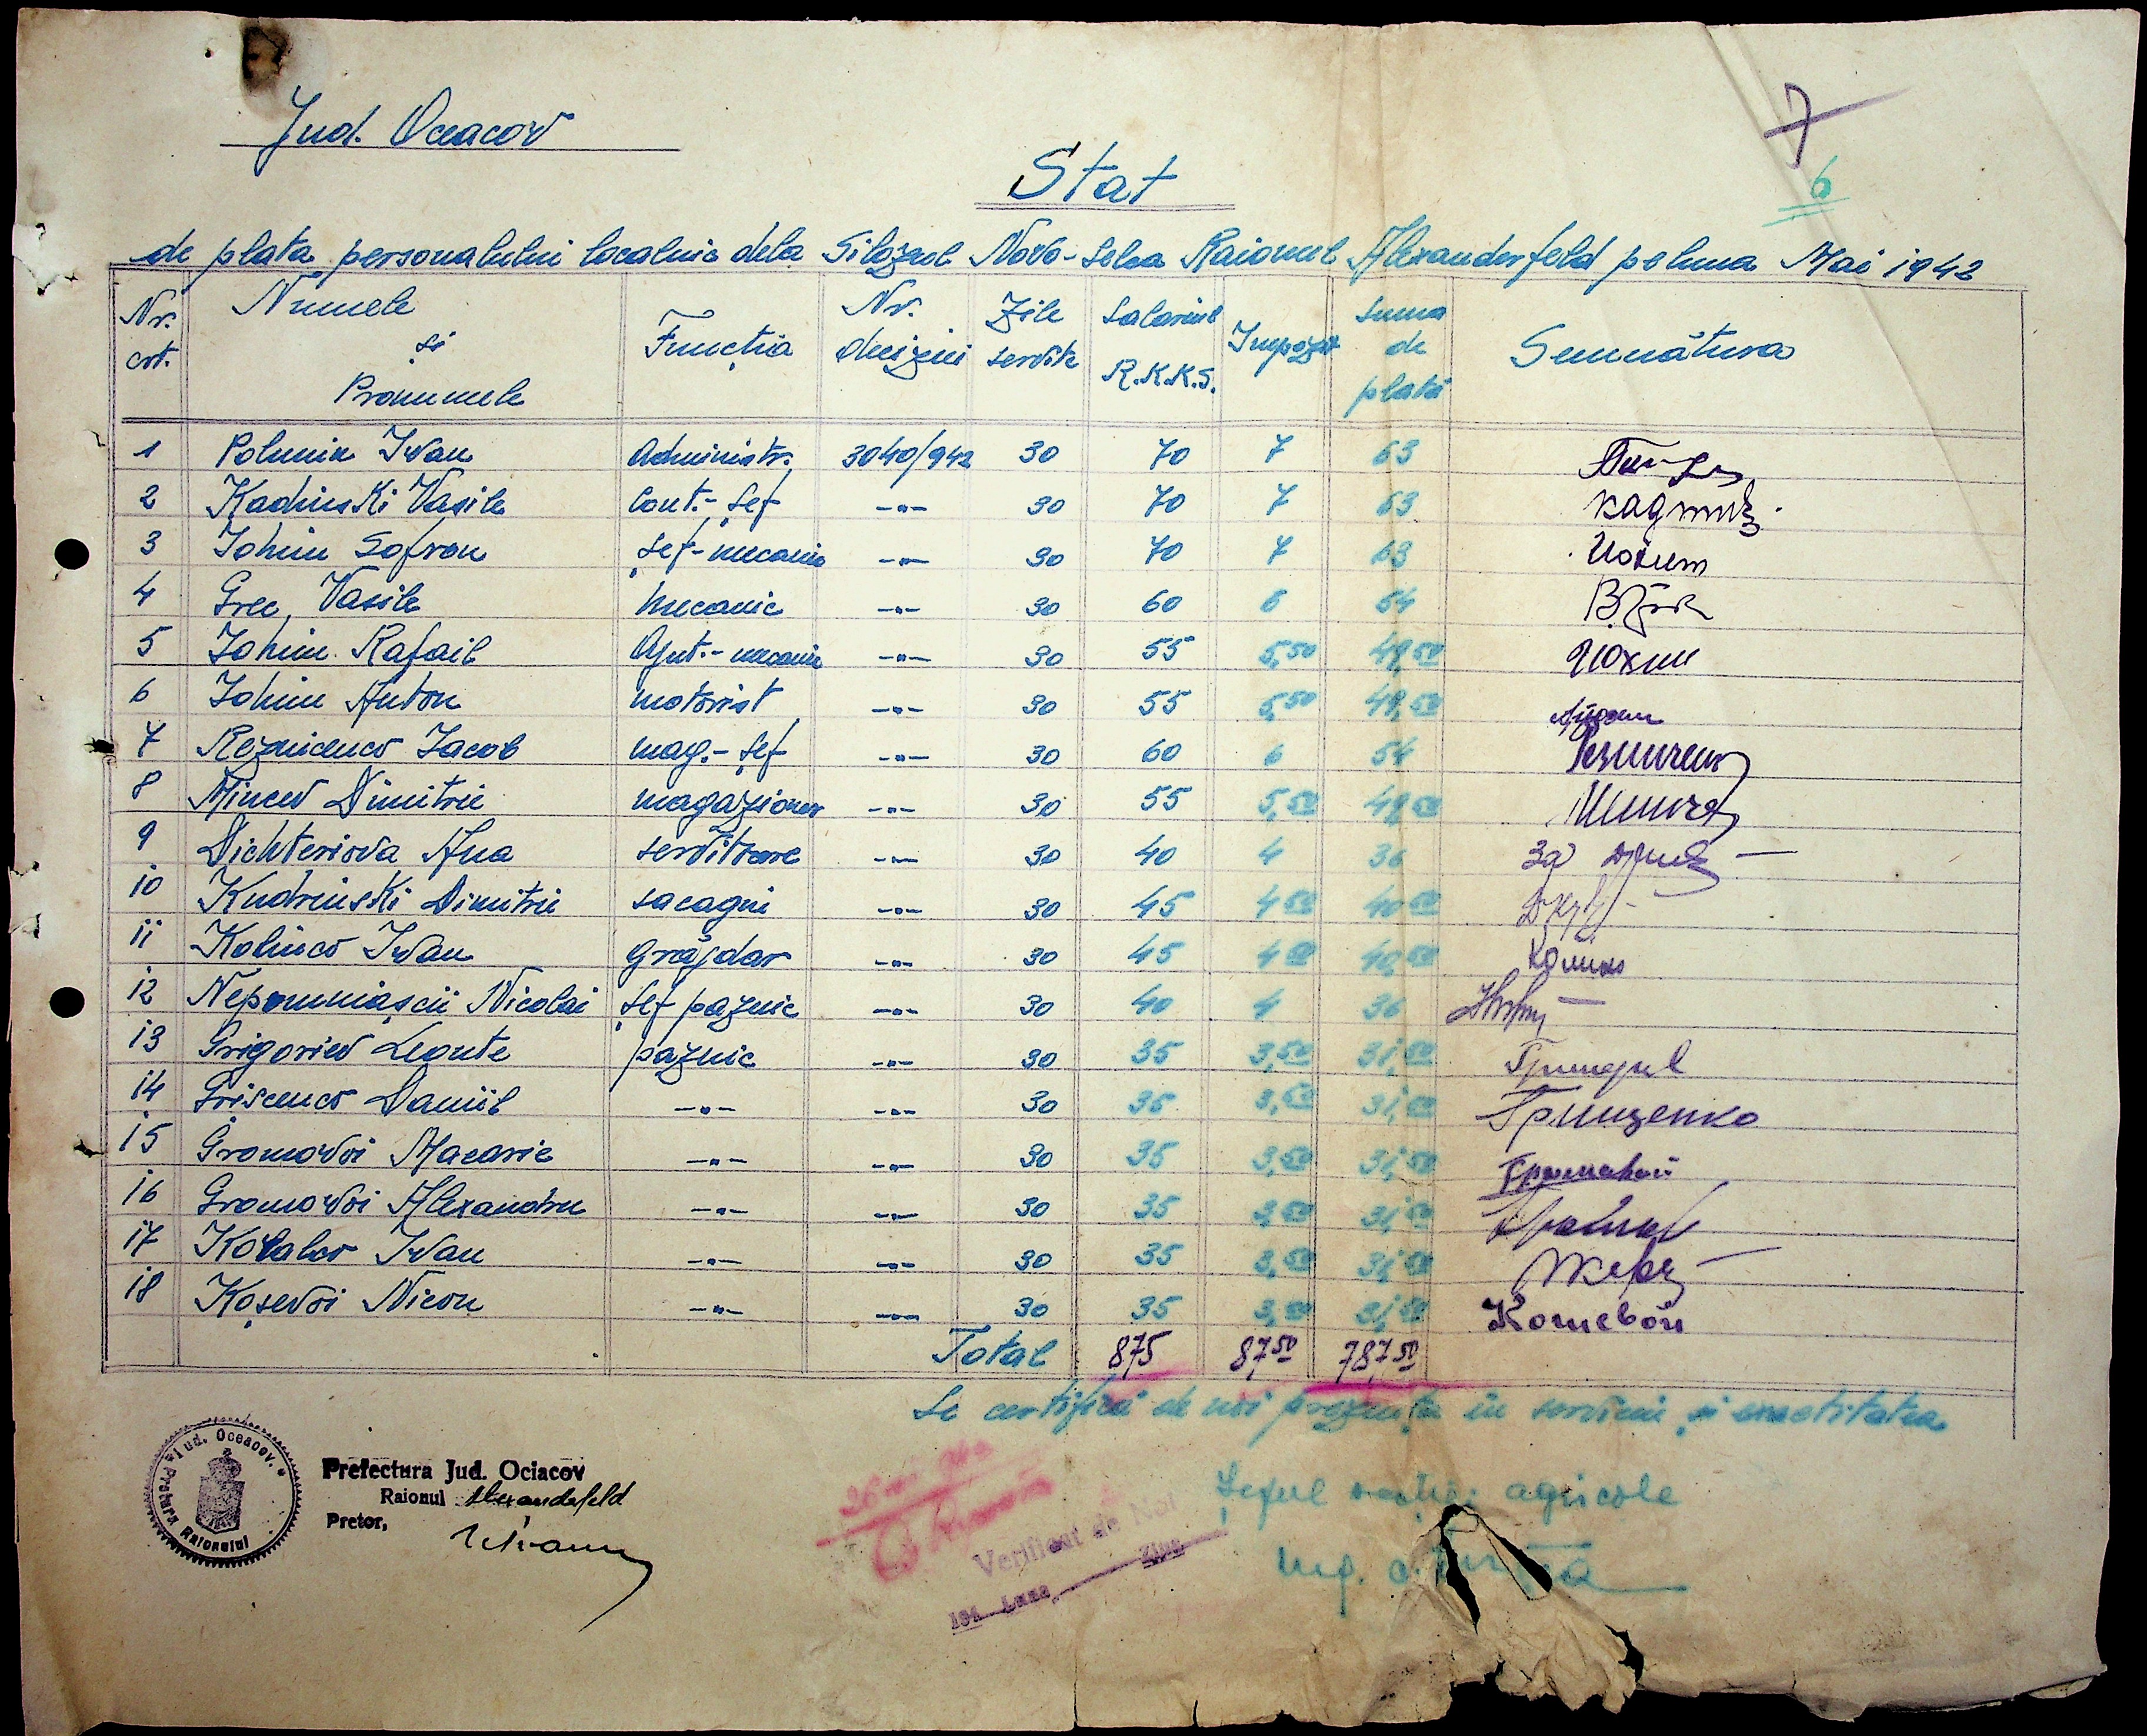 Jud. Oceacov
7
6
Stat
de plata personalului localnic dela Silozul Novo-Selca Raionul Alexanderfeld pe luna Mai 1942
Nr. crt. Numele și Pronumele Funcția Nr. deciziei Zile servite Salariul R.K.K.S. Impozit Suma de plată Semnătura
1 Polunin Ivan Administr. 3040/942 30 70 7 63
2 Kadinski Vasile Cont.-șef -"- 30 70 7 63
3 Iohim Sofron șef-mecanic -"- 30 70 7 63 Иохим
4 Grec Vasile Mecanic -"- 30 60 6 54
5 Iohim Rafail Ajut.-mecanic -"- 30 55 5,50 49,50 Иохим
6 Iohim Anton motorist -"- 30 55 5,50 49,50
7 Reznicenco Iacob mag.-șef -"- 30 60 6 54
8 Mincev Dimitrie magazioner -"- 30 55 5,50 49,50
9 Dichteriova Ana servitoare -"- 30 40 4 36
10 Kudrinski Dimitrie sacagiu -"- 30 45 4 50 40 50
11 Kolinco Ivan grăjdar -"- 30 45 4 50 40,50
12 Nepomniașcii Nicolai șef paznic -"- 30 40 4 36
13 Grigoriev Leonte paznic -"- 30 35 3,50 31,50
14 Grișcenco Daniil -"- -"- 30 35 3,50 31,50 Грищенко
15 Gromovoi Macarie -"- -"- 30 35 3,50 31,50 Громовой
16 Gromovoi Alexandru -"- -"- 30 35 3,50 31,50
17 Kovalov Ivan -"- -"- 30 35 3,50 31,50
18 Koșevoi Nicon -"- -"- 30 35 3,50 31,50 Кошевой
Total 875 87 50 787,50
Se certifică de noi prezența în serviciu și exactitatea
Jud. Oceacov.
Pretura Raionului
Prefectura Jud. Ociacov
Raionul Alexanderfeld
Pretor,
Verificat de Noi
194 Luna Ziua
Șeful secției agricole
Ing.